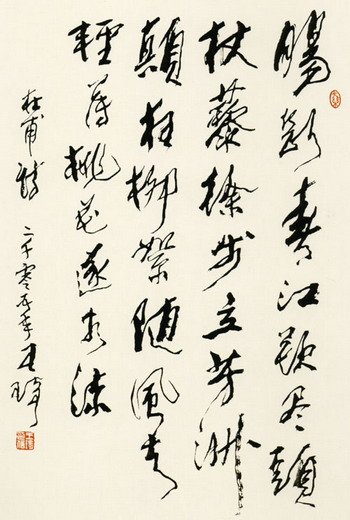 腸斷春江欲尽頭
杖藜徐步立芳洲
顛狂柳絮随風去
輕薄桃花逐水流
杜甫詩 二千零五年